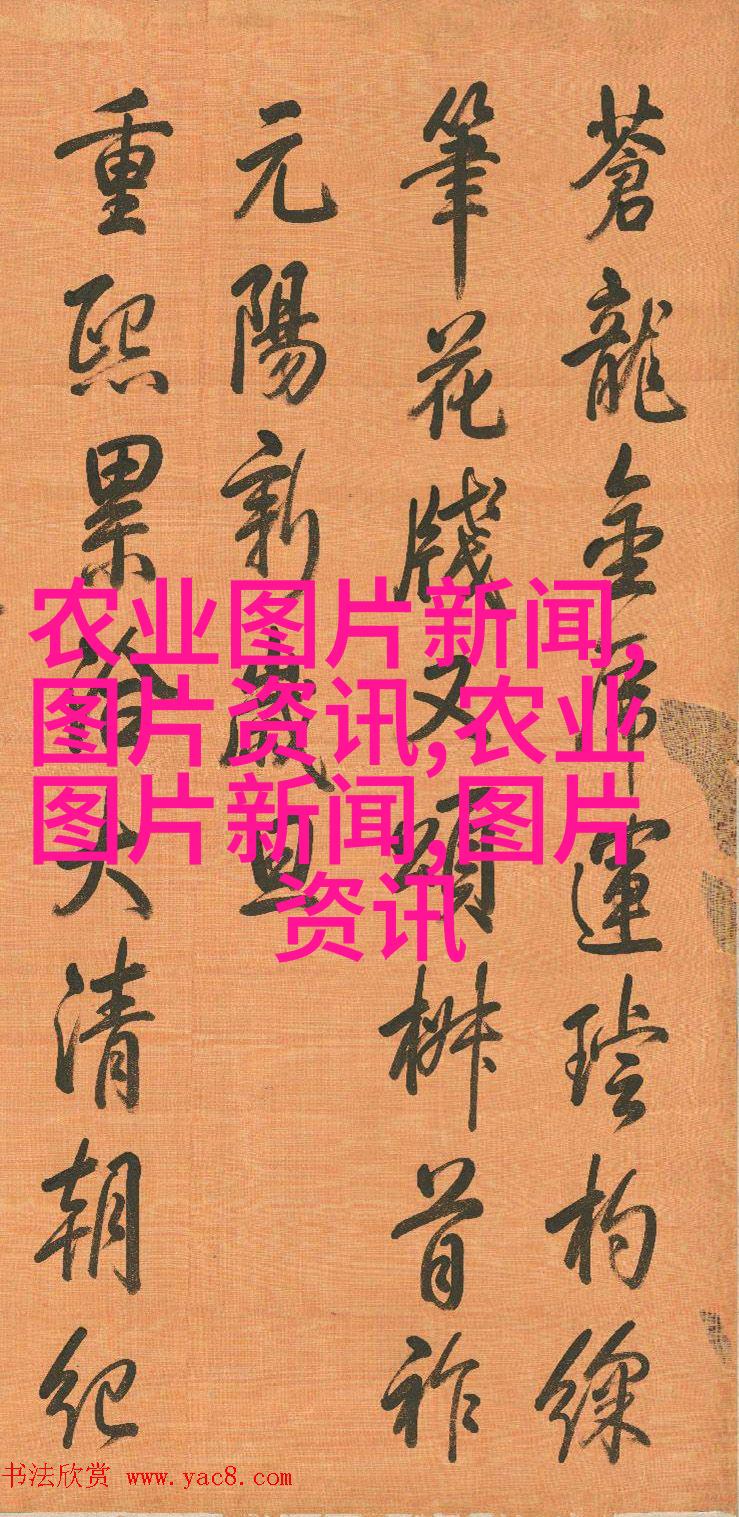 蒼龍金虎運璿杓綵
筆花牋又頌椒首祚
元陽新歲旦
重熙累洽大清朝紀
农业图片新闻,
图片资讯,农业
图片新闻,图片
资讯
书法欣赏 www.yac8.com